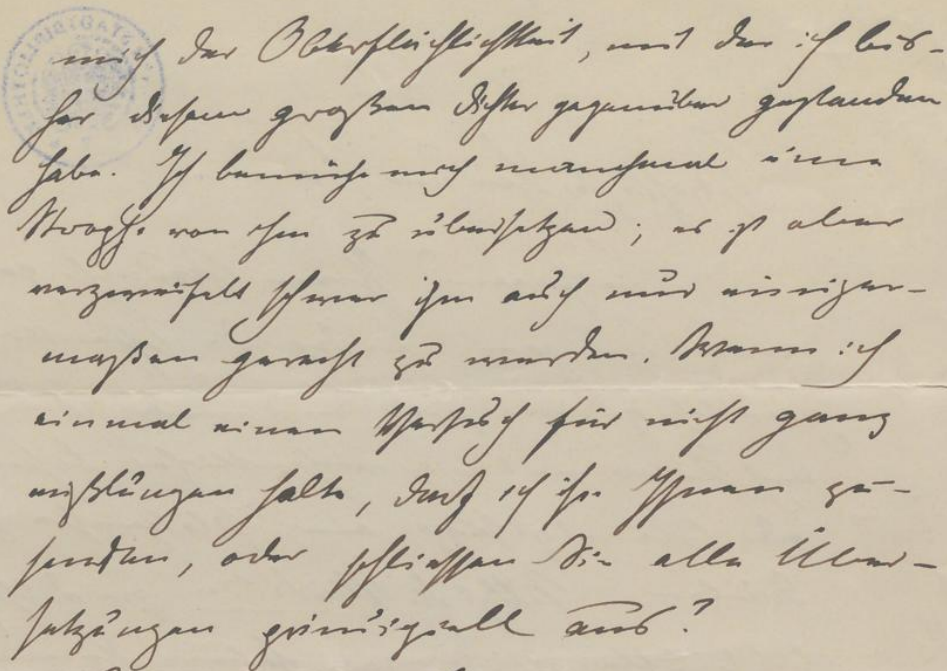 mich der Oberflächlichkeit, mit der ich bis-
her diesem großen Dichter gegenüber gestanden
habe. Ich bemühe mich manchmal eine
Strophe von ihm zu übersetzen; es ist aber
verzweifelt schwer ihm auch nur einiger-
maßen gerecht zu werden. Wenn ich
einmal einen Versuch für nicht ganz
mißlungen halte, darf ich ihn Ihnen zu-
senden, oder schliessen Sie alle Über-
setzungen prinzipiell aus?